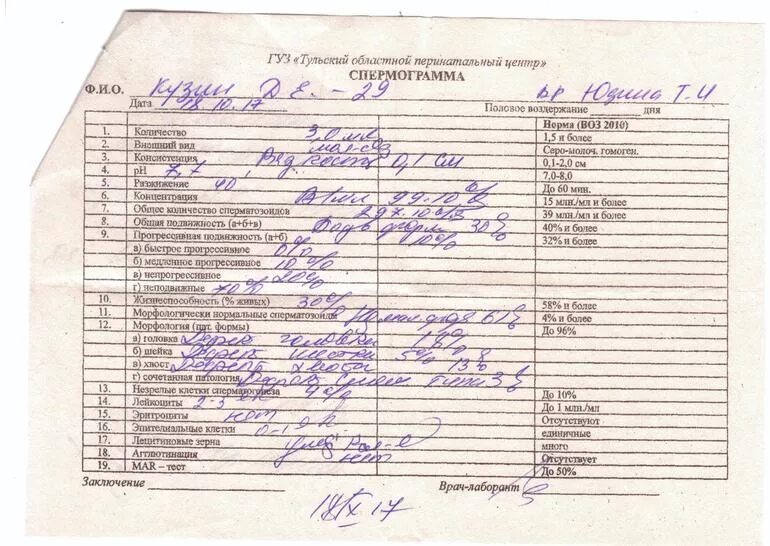 ГУЗ «Тульский областной перинатальный центр»
СПЕРМОГРАММА
Ф.И.О. Кузин Д Е. - 29 вр Юдина Т. И
Дата 18.10.17 Половое воздержание дня
Норма (ВОЗ 2010)
1. Количество 3,0 мл 1,5 и более
2. Внешний вид Серо-молоч. гомоген.
3. Консистенция Вязкость 0,1 см 0,1-2,0 см
4. pH 7,7 7,0-8,0
5. Разжижение 40 До 60 мин.
6. Концентрация В 1 мл 99.10 15 млн./мл и более
7. Общее количество сперматозоидов 297.10 39 млн и более
8. Общая подвижность (а+б+в) Подв. форм 30% 40% и более
9. Прогрессивная подвижность (а+б) 10% 32% и более
а) быстрое прогрессивное 0%
б) медленное прогрессивное 10%
в) непрогрессивное 20%
г) неподвижные 70%
10. Жизнеспособность (% живых) 30% 58% и более
11. Морфологически нормальные сперматозоиды 4% и более
12. Морфология (пат. формы) До 96%
а) головка головки
б) шейка шейки 5%
в) хвост хвоста 13%
г) сочетанная патология 3%
13. Незрелые клетки сперматогенеза 4% До 10%
14. Лейкоциты 2-3 До 1 млн./мл
15. Эритроциты нет Отсутствуют
16. Эпителиальные клетки 0-1 единичные
17. Лецитиновые зерна много
18. Агглютинация нет Отсутствует
19. MAR – тест До 50%
Заключение Врач-лаборант